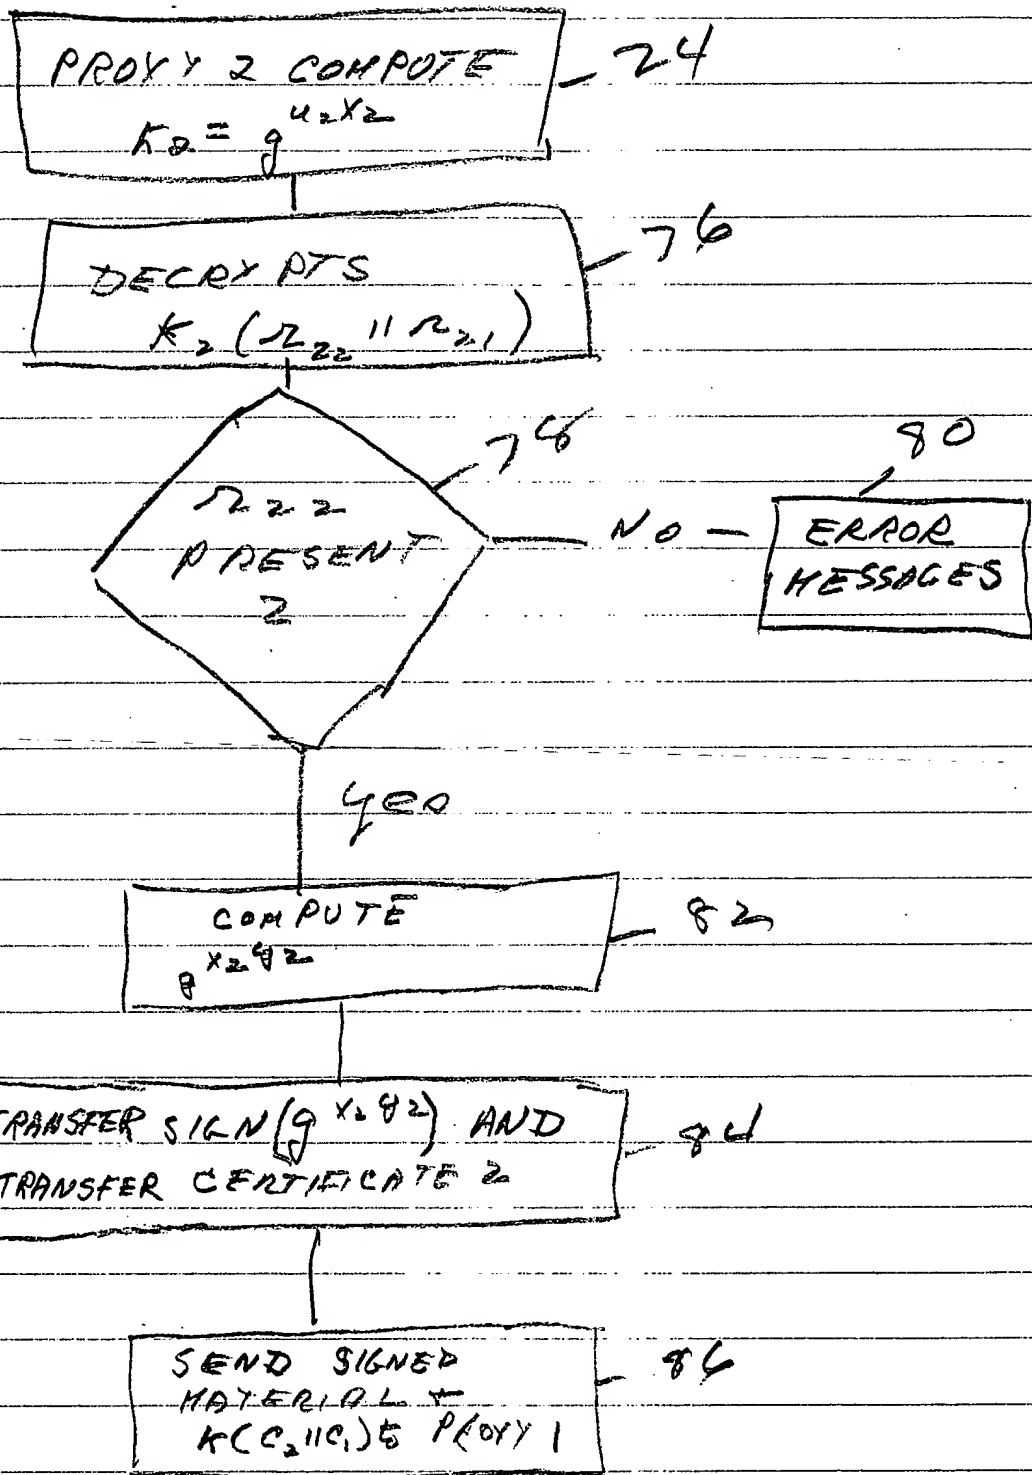 PROXY 2 COMPUTE
24
K2 = g^u2x2
DECRYPTS
76
K2 (r22 || r21)
78
r22
PRESENT
?
NO
80
ERROR
MESSAGES
yes
COMPUTE
82
g^x2y2
TRANSFER SIGN(g^x2y2) AND
84
TRANSFER CERTIFICATE 2
SEND SIGNED
86
MATERIAL +
K(C2 || C1) to PROXY 1